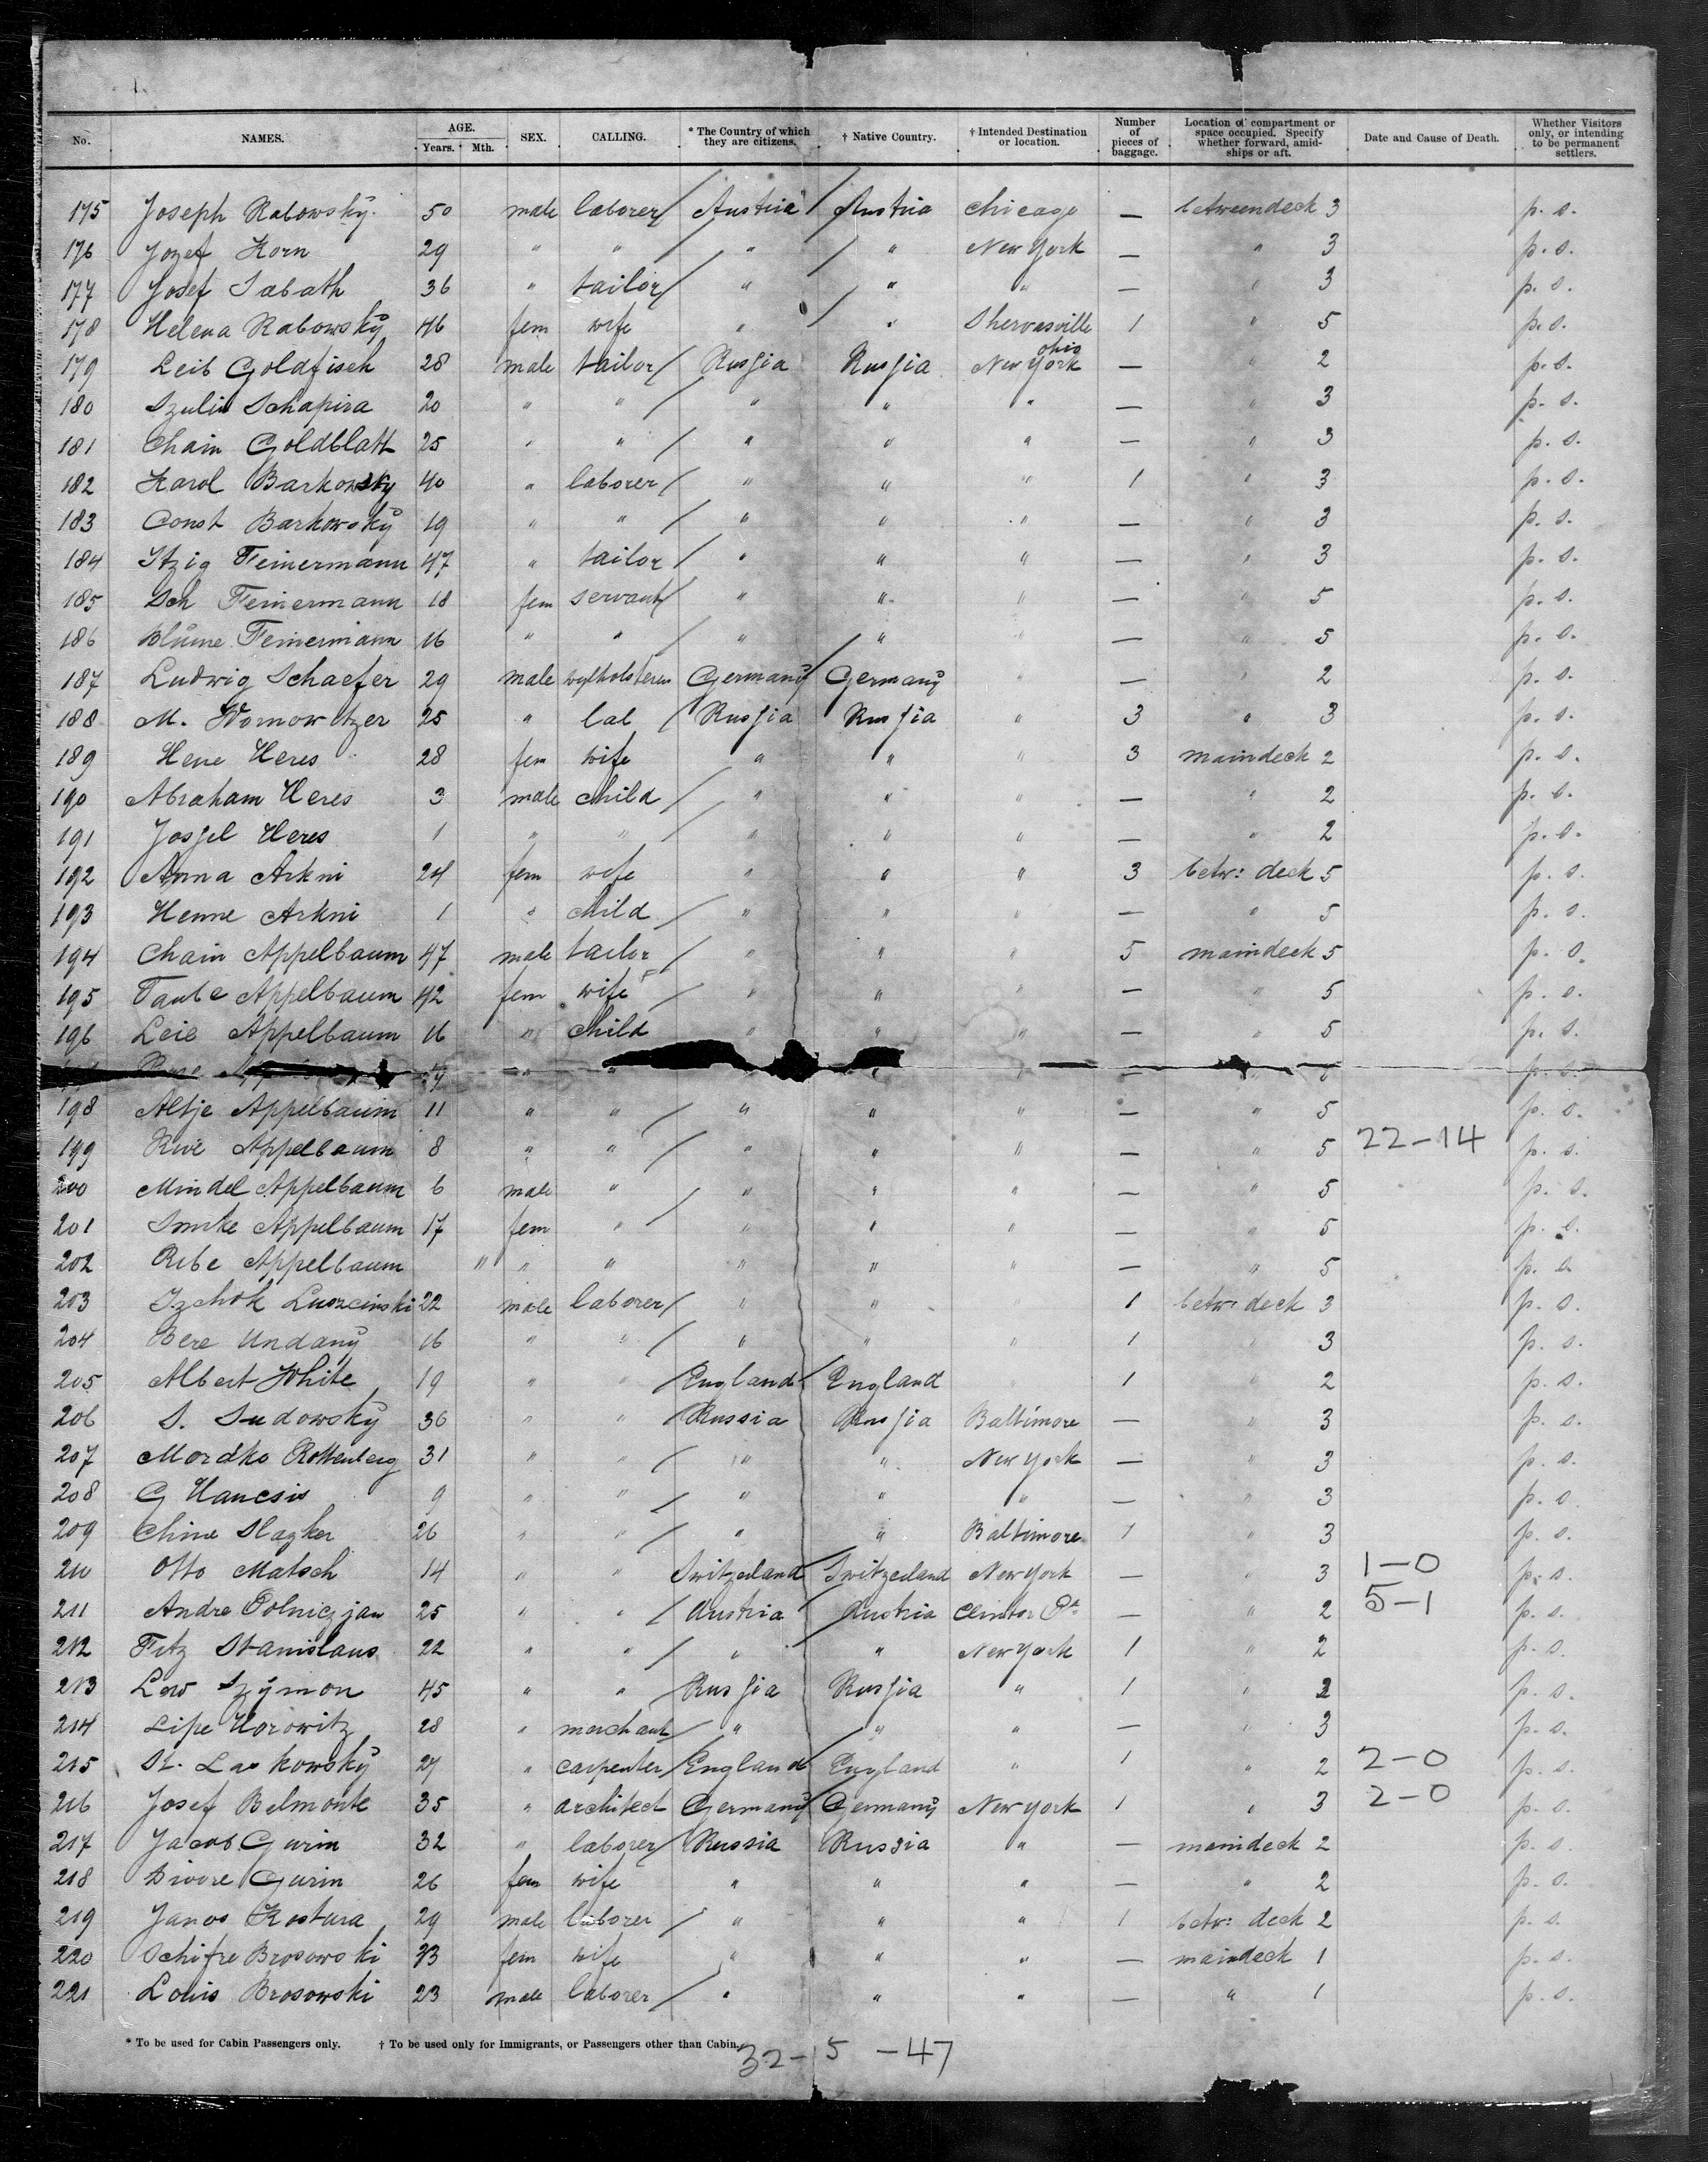 No. NAMES. AGE. Years. Mth. SEX. CALLING. * The Country of which they are citizens. † Native Country. † Intended Destination or location. Number of pieces of baggage. Location of compartment or space occupied. Specify whether forward, amidships or aft. Date and Cause of Death. Whether Visitors only, or intending to be permanent settlers.
175 Joseph Rabowský 50 male laborer Austria Austria Chicago — betweendeck 3 p. s.
176 Jozef Korn 29 " " " " New York — " 3 p. s.
177 Josef Sabath 36 " tailor " " " — " 3 p. s.
178 Helena Rabowský 46 fem wife " " 1 " 5 p. s.
ohio
179 Leib Goldfisch 28 male tailor Russia Russia New York — " 2 p. s.
180 Schapira 20 " " " " " — " 3 p. s.
181 Chain Goldblatt 25 " " " " " — " 3 p. s.
182 Karol Barkowsky 40 " laborer " " " 1 " 3 p. s.
183 Const Barkowský 19 " " " " " — " 3 p. s.
184 Itzig Feinermann 47 " tailor " " " — " 3 p. s.
185 Sch Feinermann 18 fem servant " " " — " 5 p. s.
186 Blume Feinermann 16 " " " " " — " 5 p. s.
187 Ludwig Schaefer 29 male Germany Germany " — " 2 p. s.
188 M. Wornowitzer 25 " lab Russia Russia " 3 " 3 p. s.
189 Hene Heres 28 fem wife " " " 3 maindeck 2 p. s.
190 Abraham Heres 3 male child " " " — " 2 p. s.
191 Jossel Heres 1 " " " " " — " 2 p. s.
192 Anna Arkni 24 fem wife " " " 3 betw: deck 5 p. s.
193 Henne Arkni 1 " child " " " — " 5 p. s.
194 Chain Appelbaum 47 male tailor " " " 5 maindeck 5 p. s.
195 Taube Appelbaum 42 fem wife " " " — " 5 p. s.
196 Leie Appelbaum 16 " child " " " — " 5 p. s.
" " " " — " p. s.
198 Altje Appelbaum 11 " " " " " — " 5 p. s.
199 Riwe Appelbaum 8 " " " " " — " 5 22-14 p. s.
200 Mindel Appelbaum 6 male " " " " — " 5 p. s.
201 Appelbaum 17 fem " " " " — " 5 p. s.
202 Ribe Appelbaum " " " " " " — " 5 p. s.
203 Izchok 22 male laborer " " " 1 betw: deck 3 p. s.
204 Bere Undaný 16 " " " " " 1 " 3 p. s.
205 Albert White 19 " " England England " 1 " 2 p. s.
206 S. Sudowský 36 " " Russia Russia Baltimore — " 3 p. s.
207 Mordko Rottenberg 31 " " " " New York — " 3 p. s.
208 G Hanesis 9 " " " " " — " 3 p. s.
209 Chine Slazker 26 " " " " Baltimore 1 " 3 p. s.
210 Otto Matsch 14 " " Switzerland Switzerland New York — " 3 1-0 p. s.
211 Andre Polniczjan 25 " " Austria Austria Clinton Pa — " 2 5-1 p. s.
212 Fitz Stanislaus 22 " " " " New York 1 " 2 p. s.
213 Lew Szýmon 45 " " Russia Russia " 1 " 2 p. s.
214 Lipe Horowitz 28 " merchant " " " — " 3 p. s.
215 St. Laskowský 27 " carpenter England England " 1 " 2 2-0 p. s.
216 Josef Belmonte 35 " architect Germany Germany New York 1 " 3 2-0 p. s.
217 Jacob Gurin 32 " laborer Russia Russia " — maindeck 2 p. s.
218 Diwore Gurin 26 fem wife " " " — " 2 p. s.
219 Janos Kostura 29 male laborer " " " 1 betw: deck 2 p. s.
220 Schifre Brosowski 23 fem wife " " " — maindeck 1 p. s.
221 Louis Brosowski 23 male laborer " " " — " 1 p. s.
* To be used for Cabin Passengers only. † To be used only for Immigrants, or Passengers other than Cabin.
32-15-47